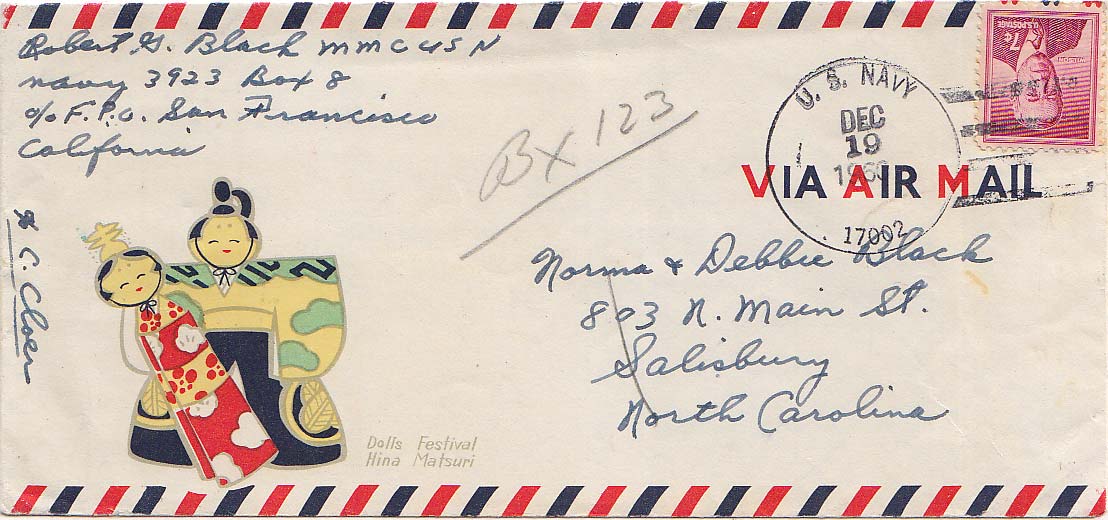 Robert G. Black MMC USN
Navy 3923 Box 8
c/o F.P.O. San Francisco
California
U.S. POSTAGE
7¢
U. S. NAVY
DEC
19
17002
Bx 123
VIA AIR MAIL
Norma & Debbie Black
803 N. Main St.
Salisbury
North Carolina
C. Cloer
Dolls Festival
Hina Matsuri